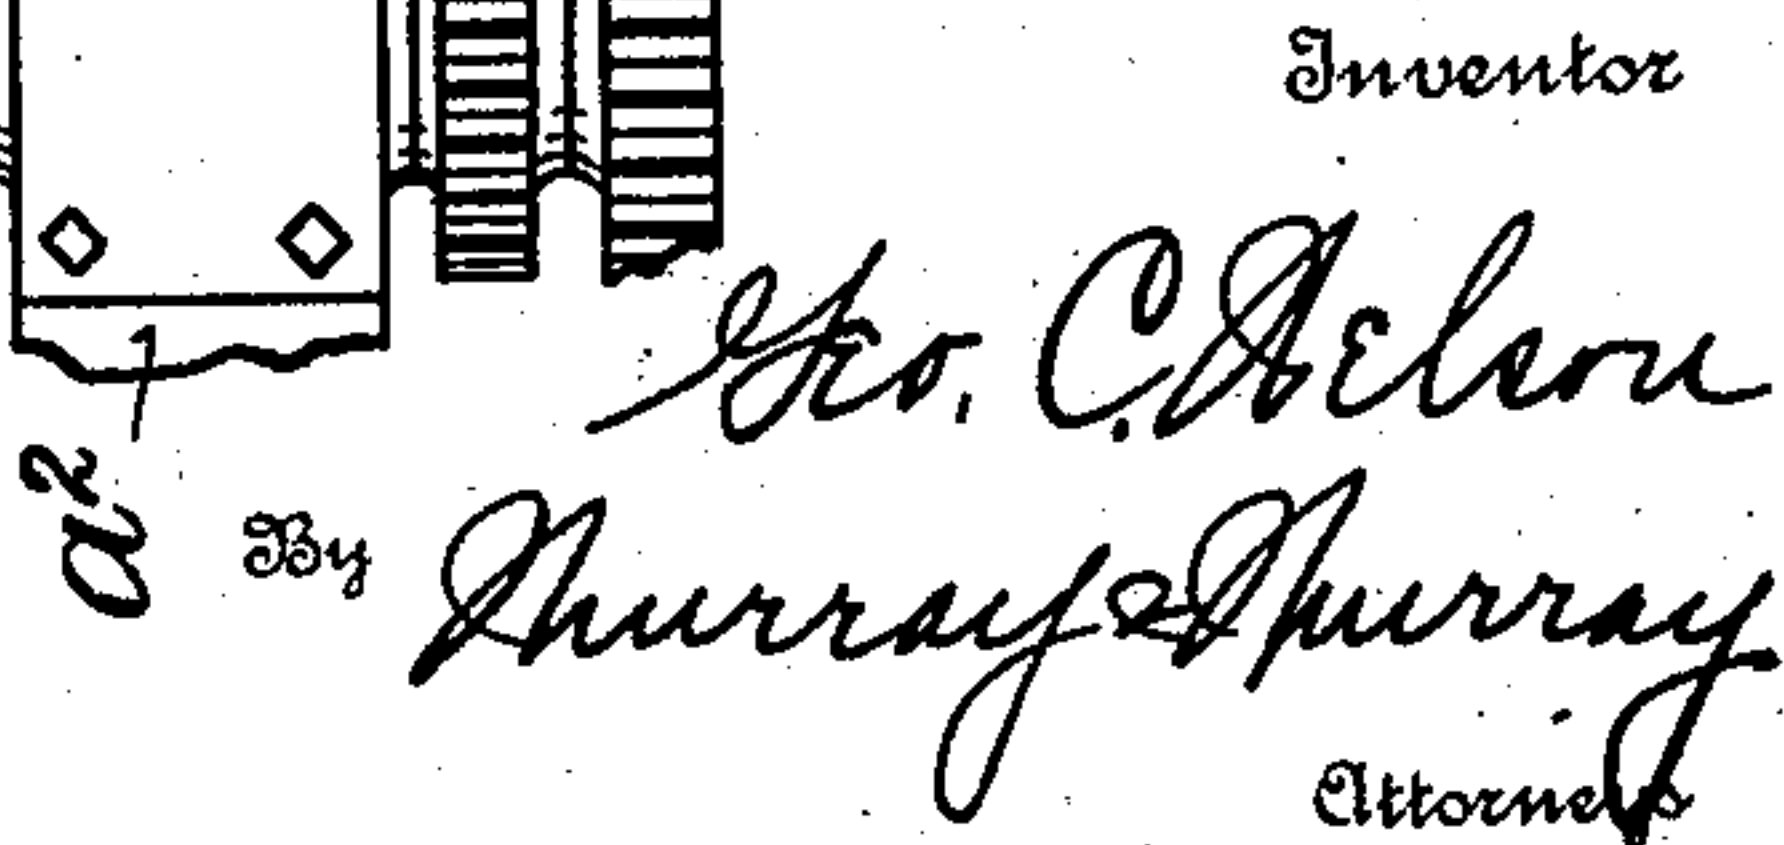 Inventor
Geo. C. Nelson
a²
By Murray & Murray
Attorneys